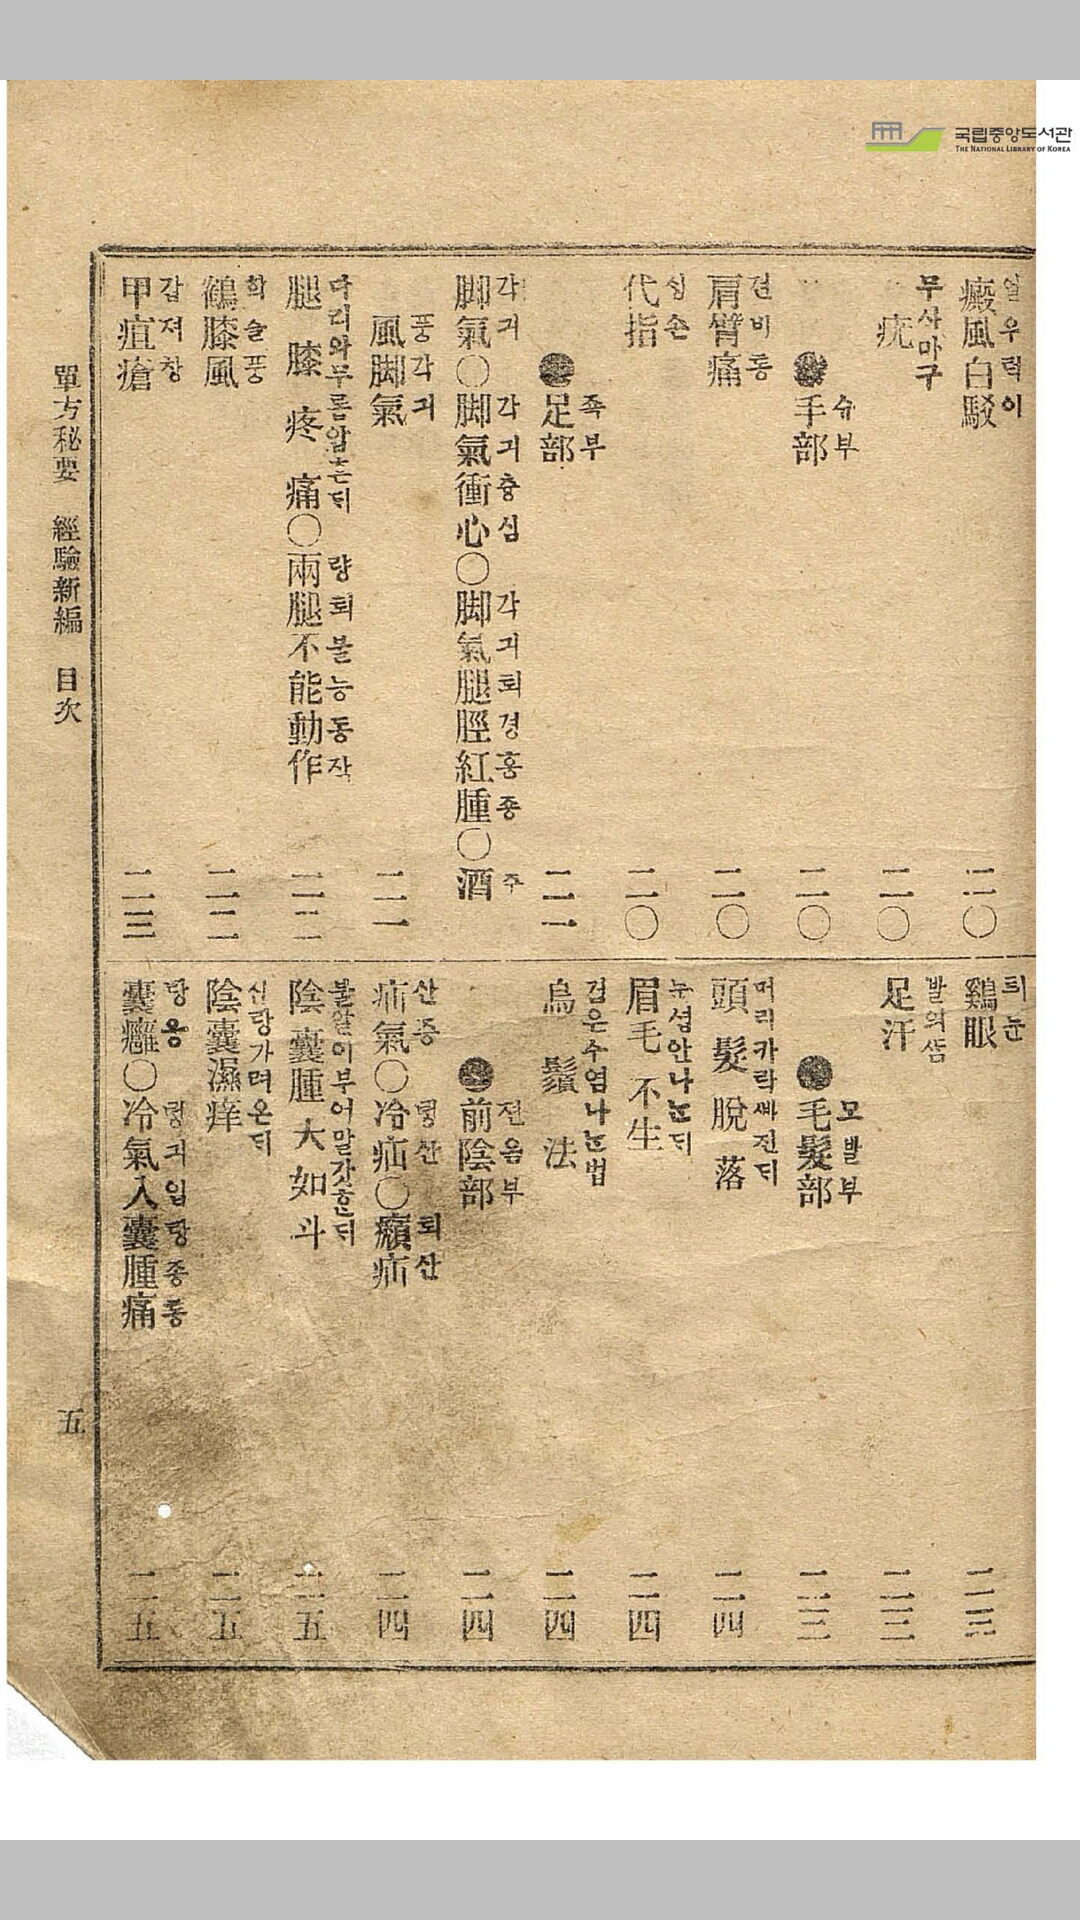 국립중앙도서관
THE NATIONAL LIBRARY OF KOREA
癜風白駁 얼우럭이 二〇
疣 무사마구 二〇
手部 슈부 二〇
肩臂痛 견비통 二〇
代指 싱손 二〇
足部 죡부 二一
脚氣〇脚氣衝心〇脚氣腿脛紅腫〇酒 각긔 각긔츙심 각긔퇴경홍죵 주
風脚氣 풍각긔 二一
腿膝疼痛〇兩腿不能動作 다리와무릅압흔ᄃᆡ 량퇴불능동작 二二
鶴膝風 학슬풍 二二
甲疽瘡 갑저창 二三
鷄眼 틔눈 二三
足汗 발의ᄯᅡᆷ 二三
毛髮部 모발부 二三
頭髮脫落 머리카락ᄲᅡ진ᄃᆡ 二四
眉毛不生 눈섭안나ᄂᆞᆫᄃᆡ 二四
烏鬚法 검은수염나ᄂᆞᆫ법 二四
前陰部 젼음부 二四
疝氣〇冷疝〇㿗疝 산증 링산 퇴산 二四
陰囊腫大如斗 불알이부어말갓흔ᄃᆡ 二五
陰囊濕痒 신랑가려온ᄃᆡ 二五
囊癰〇冷氣入囊腫痛 랑옹 링긔입랑죵통 二五
單方秘要 經驗新編 目次
五